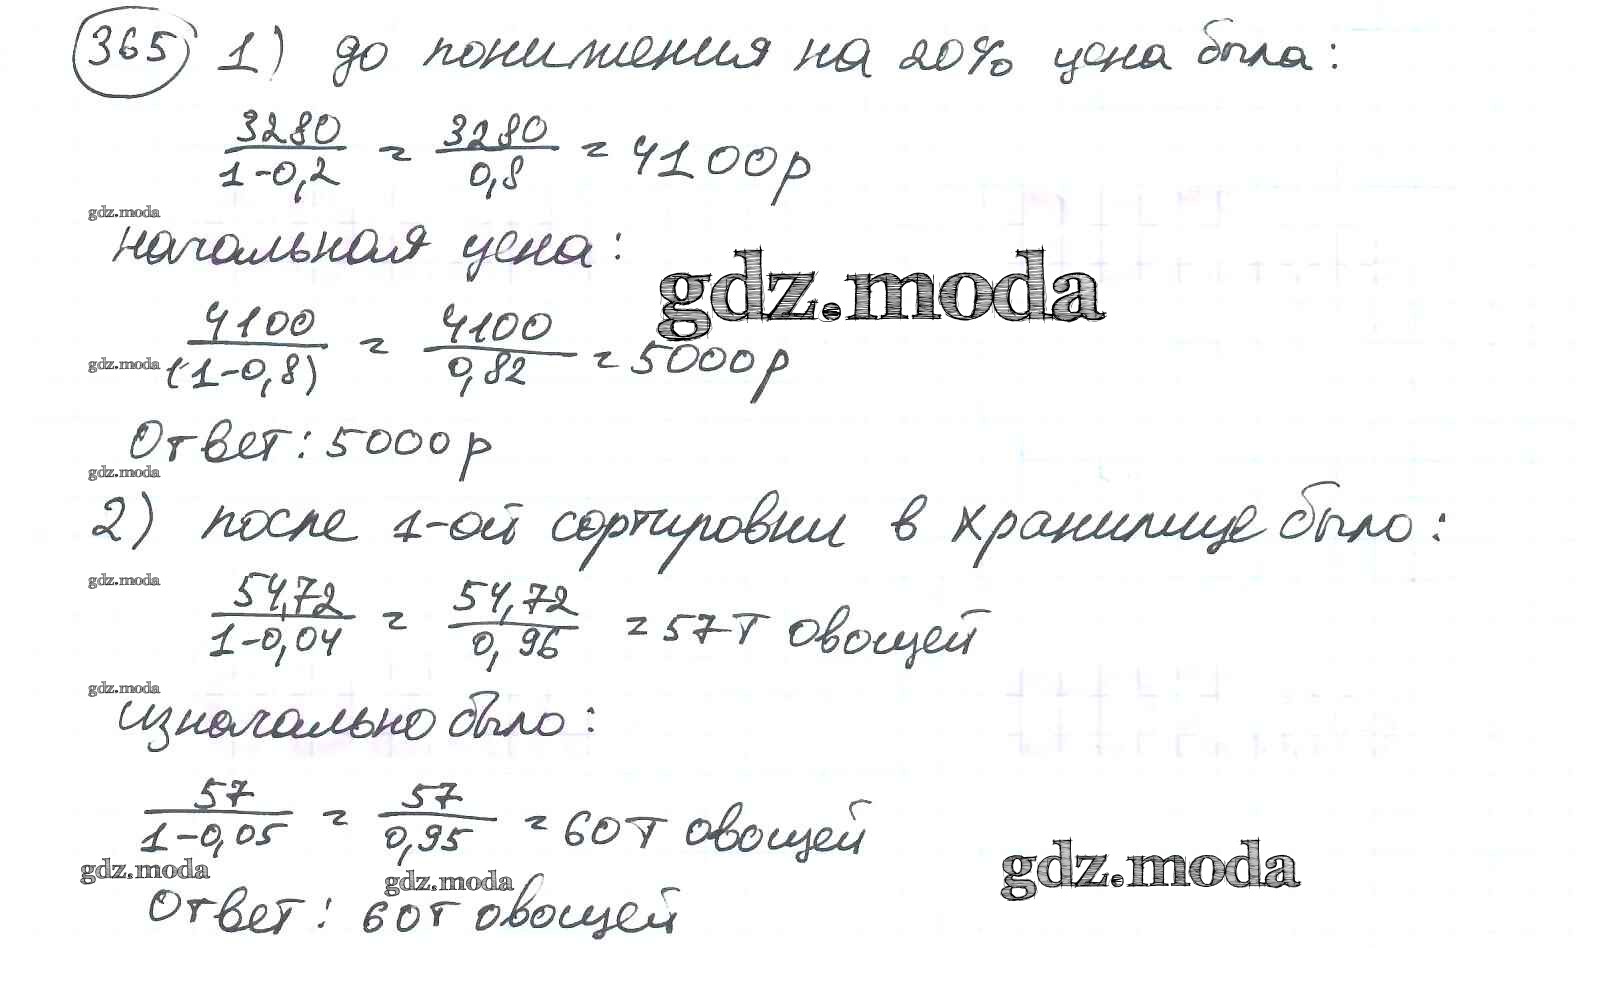 365 1) до понижения на 20% цена была:
3280/1-0,2 = 3280/0,8 = 4100р
gdz.moda
начальная цена:
gdz.moda
4100/(1-0,8) = 4100/0,82 = 5000р
gdz.moda
Ответ: 5000р
gdz.moda
2) после 1-ой сортировки в хранилище было:
gdz.moda
54,72/1-0,04 = 54,72/0,96 = 57т овощей
gdz.moda
изначально было:
57/1-0,05 = 57/0,95 = 60т овощей
gdz.moda gdz.moda gdz.moda
Ответ: 60т овощей